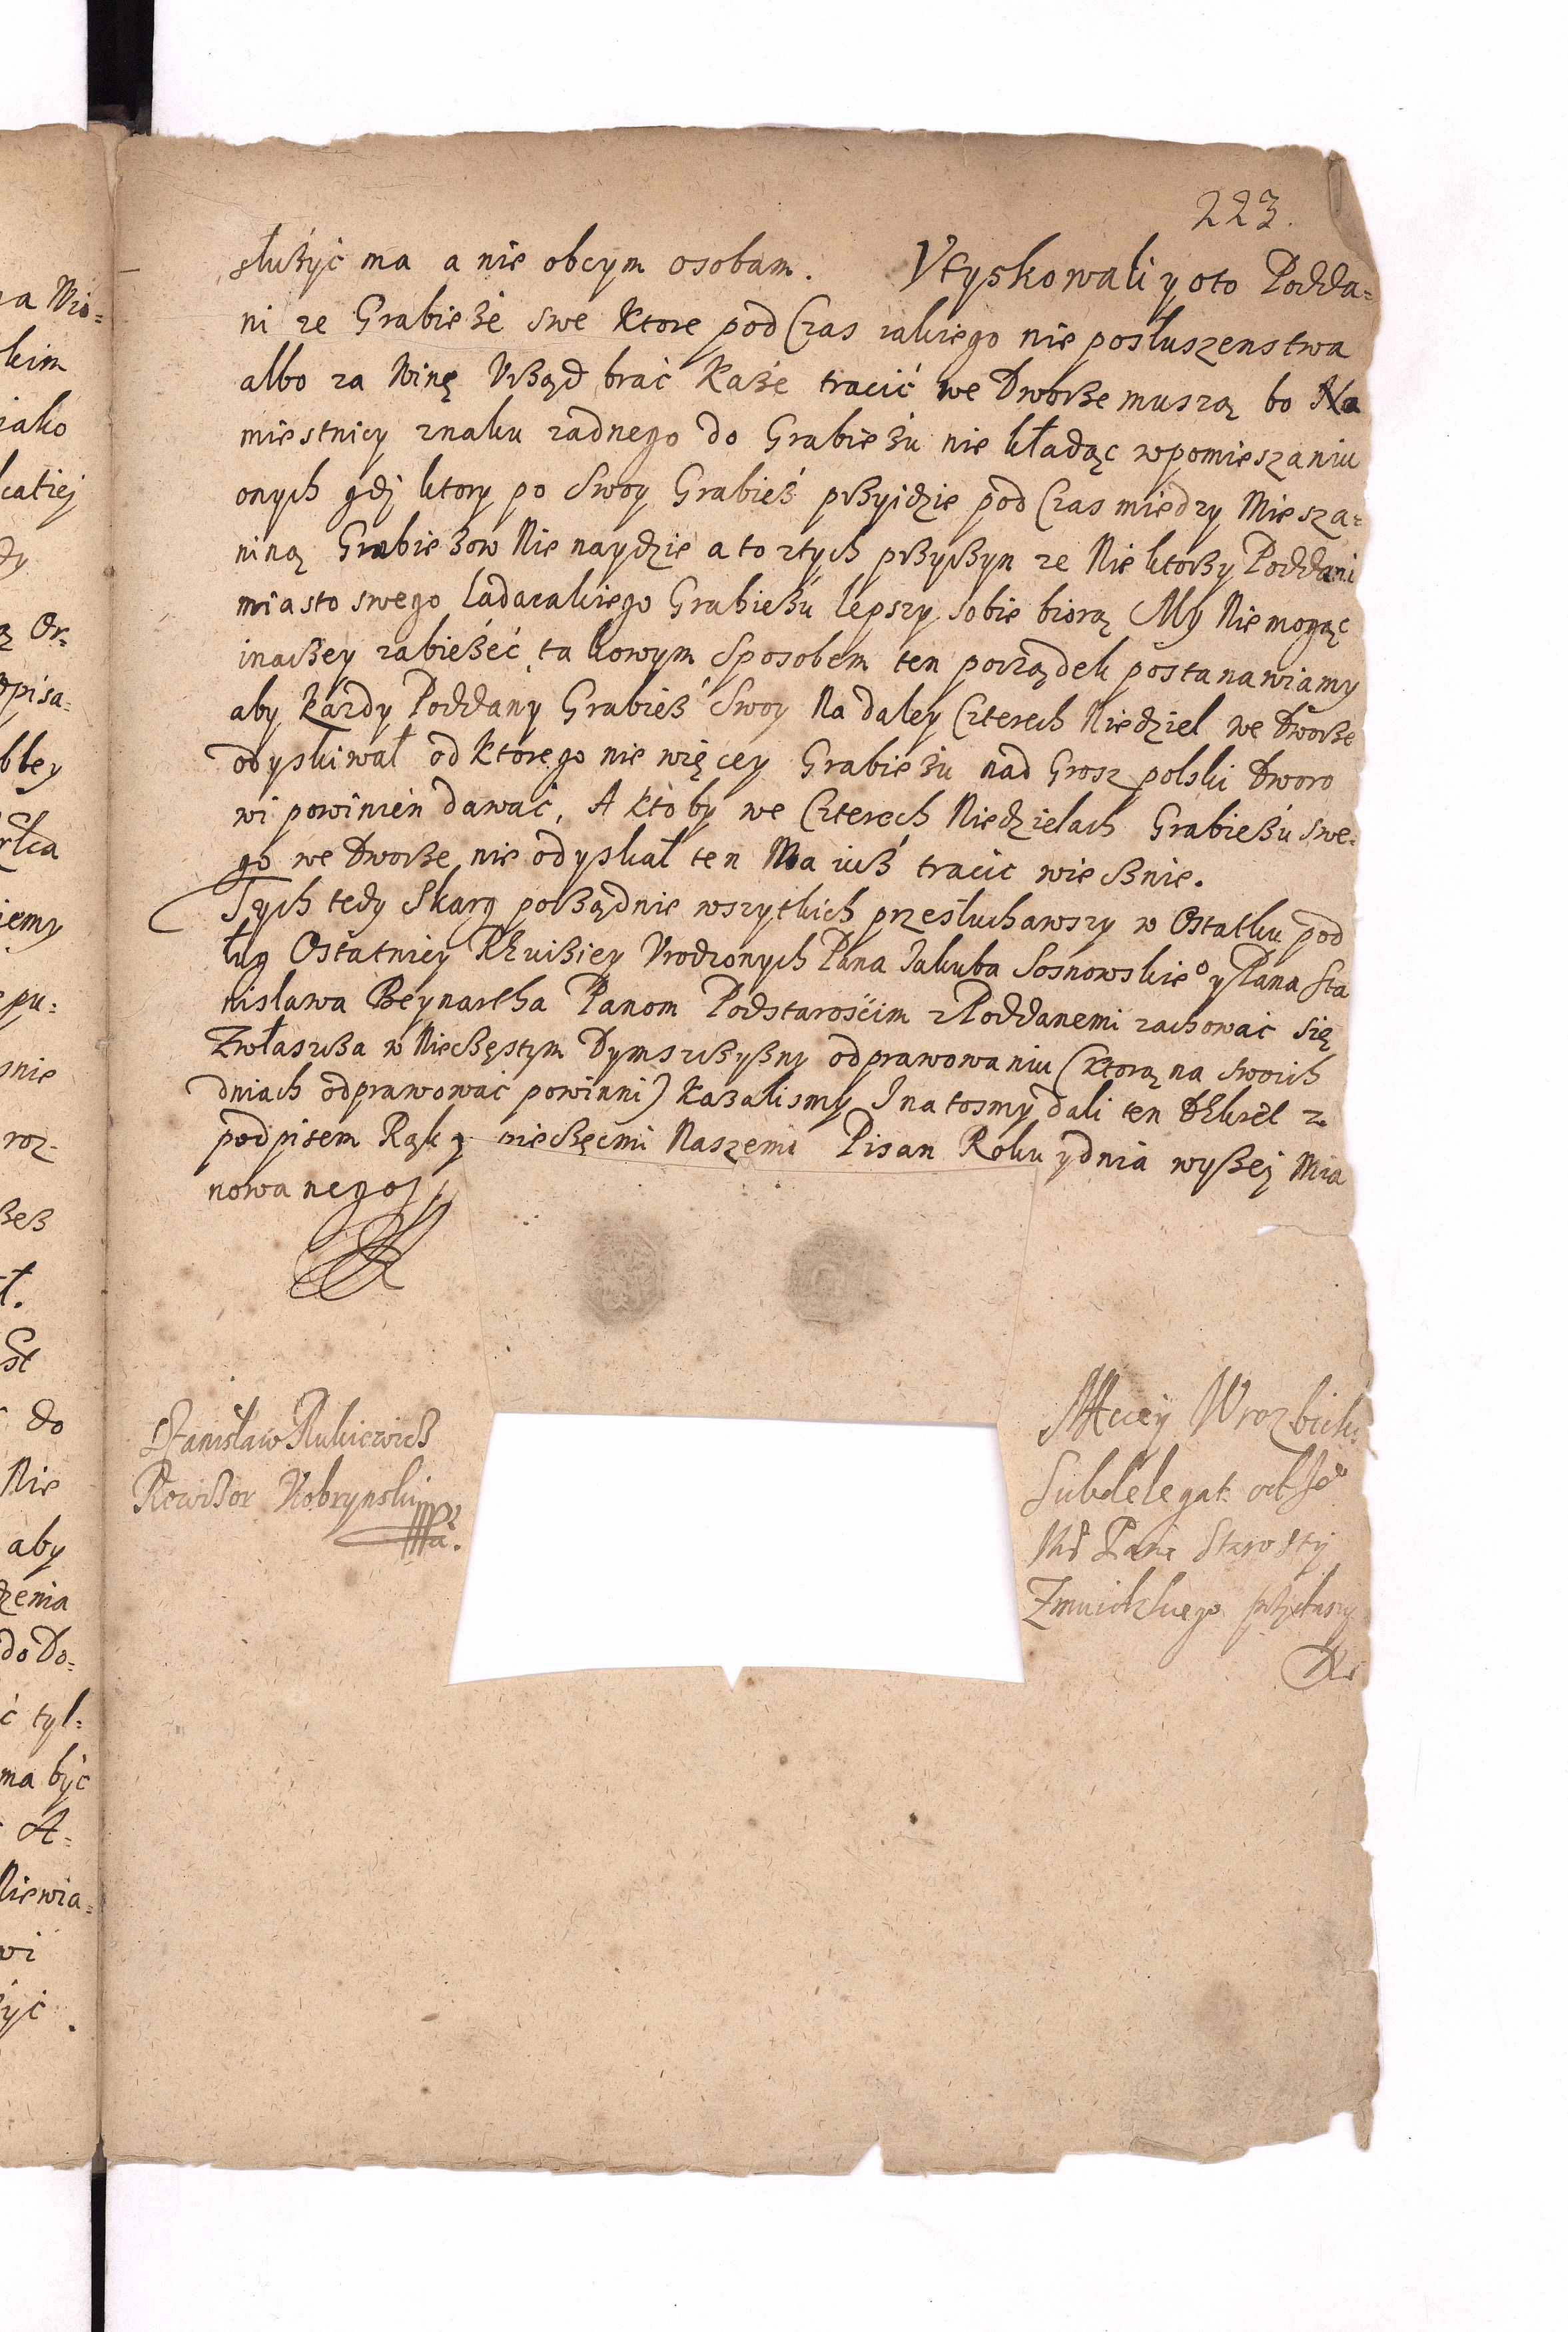 223.
służyć ma a nie obcym osobam. Vtyskowali y oto Podda=
ni ze Grabieże swe ktore pod Czas iakiego nie posłuszenstwa
albo za Winę Vrząd brać każe tracić we Dworze muszą bo Na
miestnicy znaku żadnego do Grabieżu nie kładąc w pomieszaniu
onych gdj ktory po Swoy Grabież przyidzie pod Czas miedzy Miesza=
niną Grabieżow Nie naydzie a to z tych przyczyn ze Nie ktorzy Poddani
miasto swego ladaiakiego Grabieżu lepszy sobie biorą My Nie mogąc
inaczey zabieżeć takowym Sposobem ten porządek postanawiamy
aby każdy Poddany Grabież Swoy Na daley Czterech Niedziel we Dworze
odyskiwał od ktorego nie więcey Grabieżu nad Grosz polski Dworo
wi powinien dawać, A kto by we Czterech Niedzielach Grabieżu swe=
go we Dworze nie odyskał ten Ma iuż tracic wiecznie.
Tych tedy Skarg porządnie wszytkich przesłuchawszy w Ostatku pod
ług Ostatniey Rewiziey Vrodzonych Pana Jakuba Sosnowskieo y Pana Sta
nisława Beynartha Panom Podstarościm z Poddanemi zachować się
Zwłaszcza w Nieczęstym Dymszczyzny odprawowaniu (ktorą na Swoich
dniach odprawować powinni) kazalismy I na tosmy dali ten Dekret z
podpisem Rąk y pieczęcmi Naszemi Pisan Roku y dnia wyżej Mia
nowanego
Stanisław Rukiewicz
Rewizor Kobrynski
Maciey Wrozbick
Subdelegat od Je°
Mś Pana Starosty
Zmuidzkiego